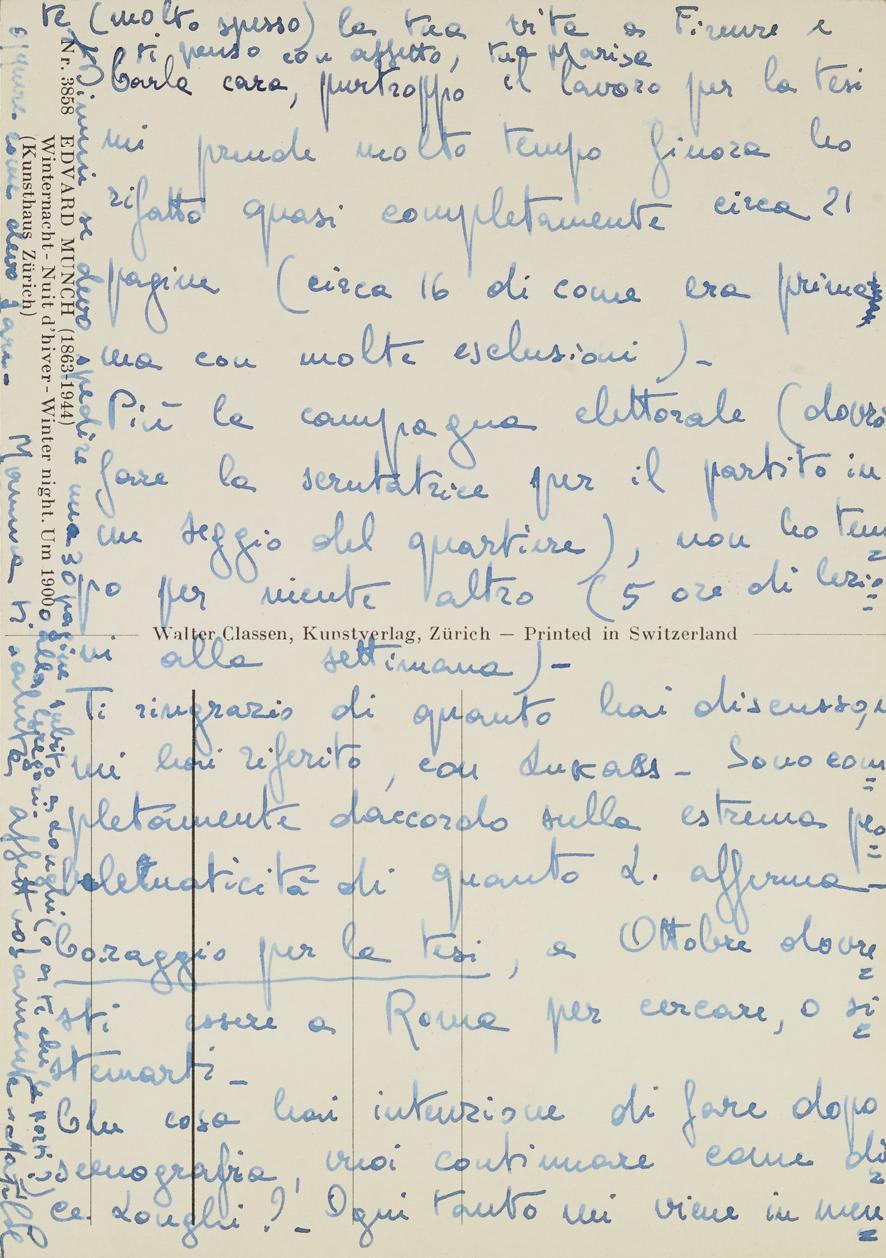 Carla cara, purtroppo il lavoro per la tesi
mi prende molto tempo finora ho
rifatto quasi completamente circa 21
pagine (circa 16 di come era prima
ma con molte esclusioni)-
Più la campagna elettorale (dovrò
fare la scrutatrice per il partito in
un seggio del quartiere), non ho tem=
po per niente altro (5 ore di lezio=
ni alla settimana)-
Ti ringrazio di quanto hai discusso, e
mi hai riferito, con Lukacs- Sono com=
pletamente daccordo sulla estrema pro=
blematicità di quanto L. afferma-
Coraggio per la tesi, a Ottobre dovre=
sti essere a Roma per cercare, o si=
stemarti-
Che cosa hai intenzione di fare dopo
scenografia, vuoi continuare come di=
ce Longhi?- Ogni tanto mi viene in men=
te (molto spesso) la tua vita a Firenze e
ti penso con affetto, tua Marisa
Dimmi se devo spedire una 30 pagine subito a Longhi (o a te che le porti?)
o alla Gregori.
oppure come devo fare- Mamma ti saluta affettuosamente
Nr. 3858 EDVARD MUNCH (1863-1944)
Winternacht - Nuit d'hiver - Winter night. Um 1900
(Kunsthaus Zürich)
Walter Classen, Kunstverlag, Zürich — Printed in Switzerland